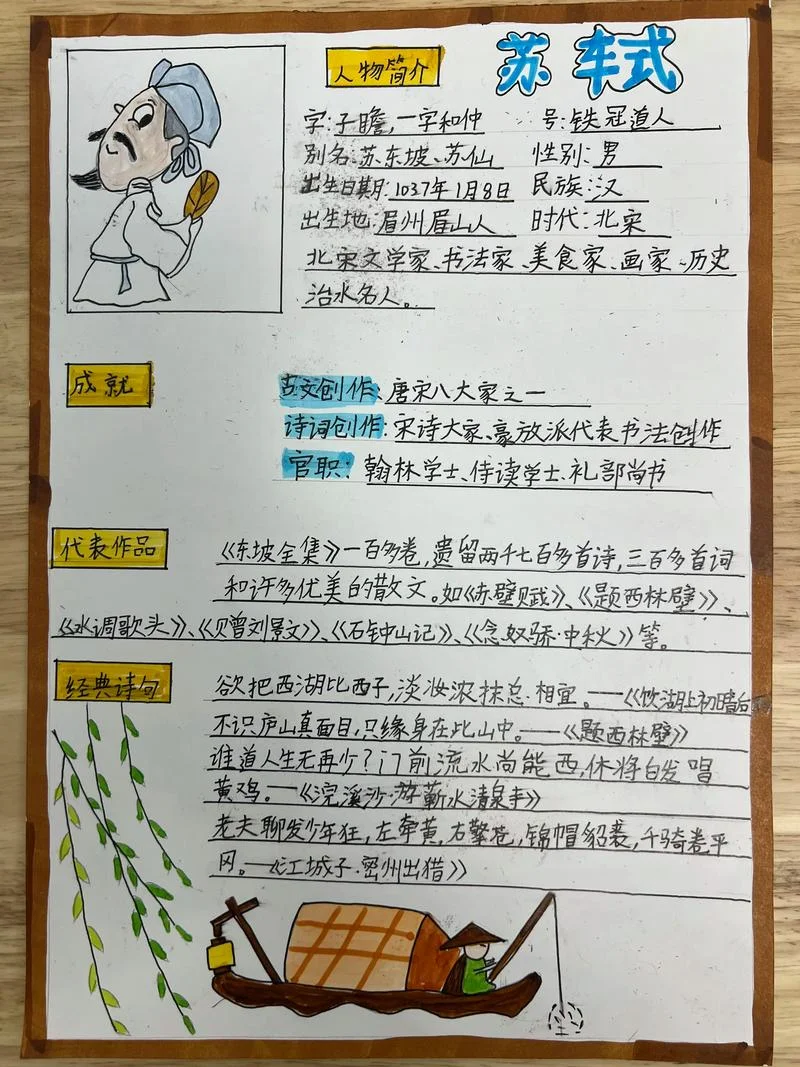 人物简介
苏轼
字:子瞻,一字和仲 号:铁冠道人
别名:苏东坡、苏仙 性别:男
出生日期:1037年1月8日 民族:汉
出生地:眉州眉山人 时代:北宋
北宋文学家、书法家、美食家、画家、历史
治水名人。
成就
古文创作:唐宋八大家之一
诗词创作:宋诗大家、豪放派代表书法创作
官职:翰林学士、侍读学士、礼部尚书
代表作品
《东坡全集》一百多卷,遗留两千七百多首诗,三百多首词
和许多优美的散文。如《赤壁赋》、《题西林壁》、
《水调歌头》、《贝曾刘景文》、《石钟山记》、《念奴骄·中秋》等。
经典诗句
欲把西湖比西子,淡妆浓抹总·相宜。——《饮湖上初晴后
不识庐山真面目,只缘身在此山中。——《题西林壁》
谁道人生无再少?门前流水尚能西,休将白发唱
黄鸡。——《浣溪沙·游蕲水清泉手》
老夫聊发少年狂,左牵黄,右擎苍,锦帽貂裘,千骑卷平
冈。——《江城子·密州出猎》